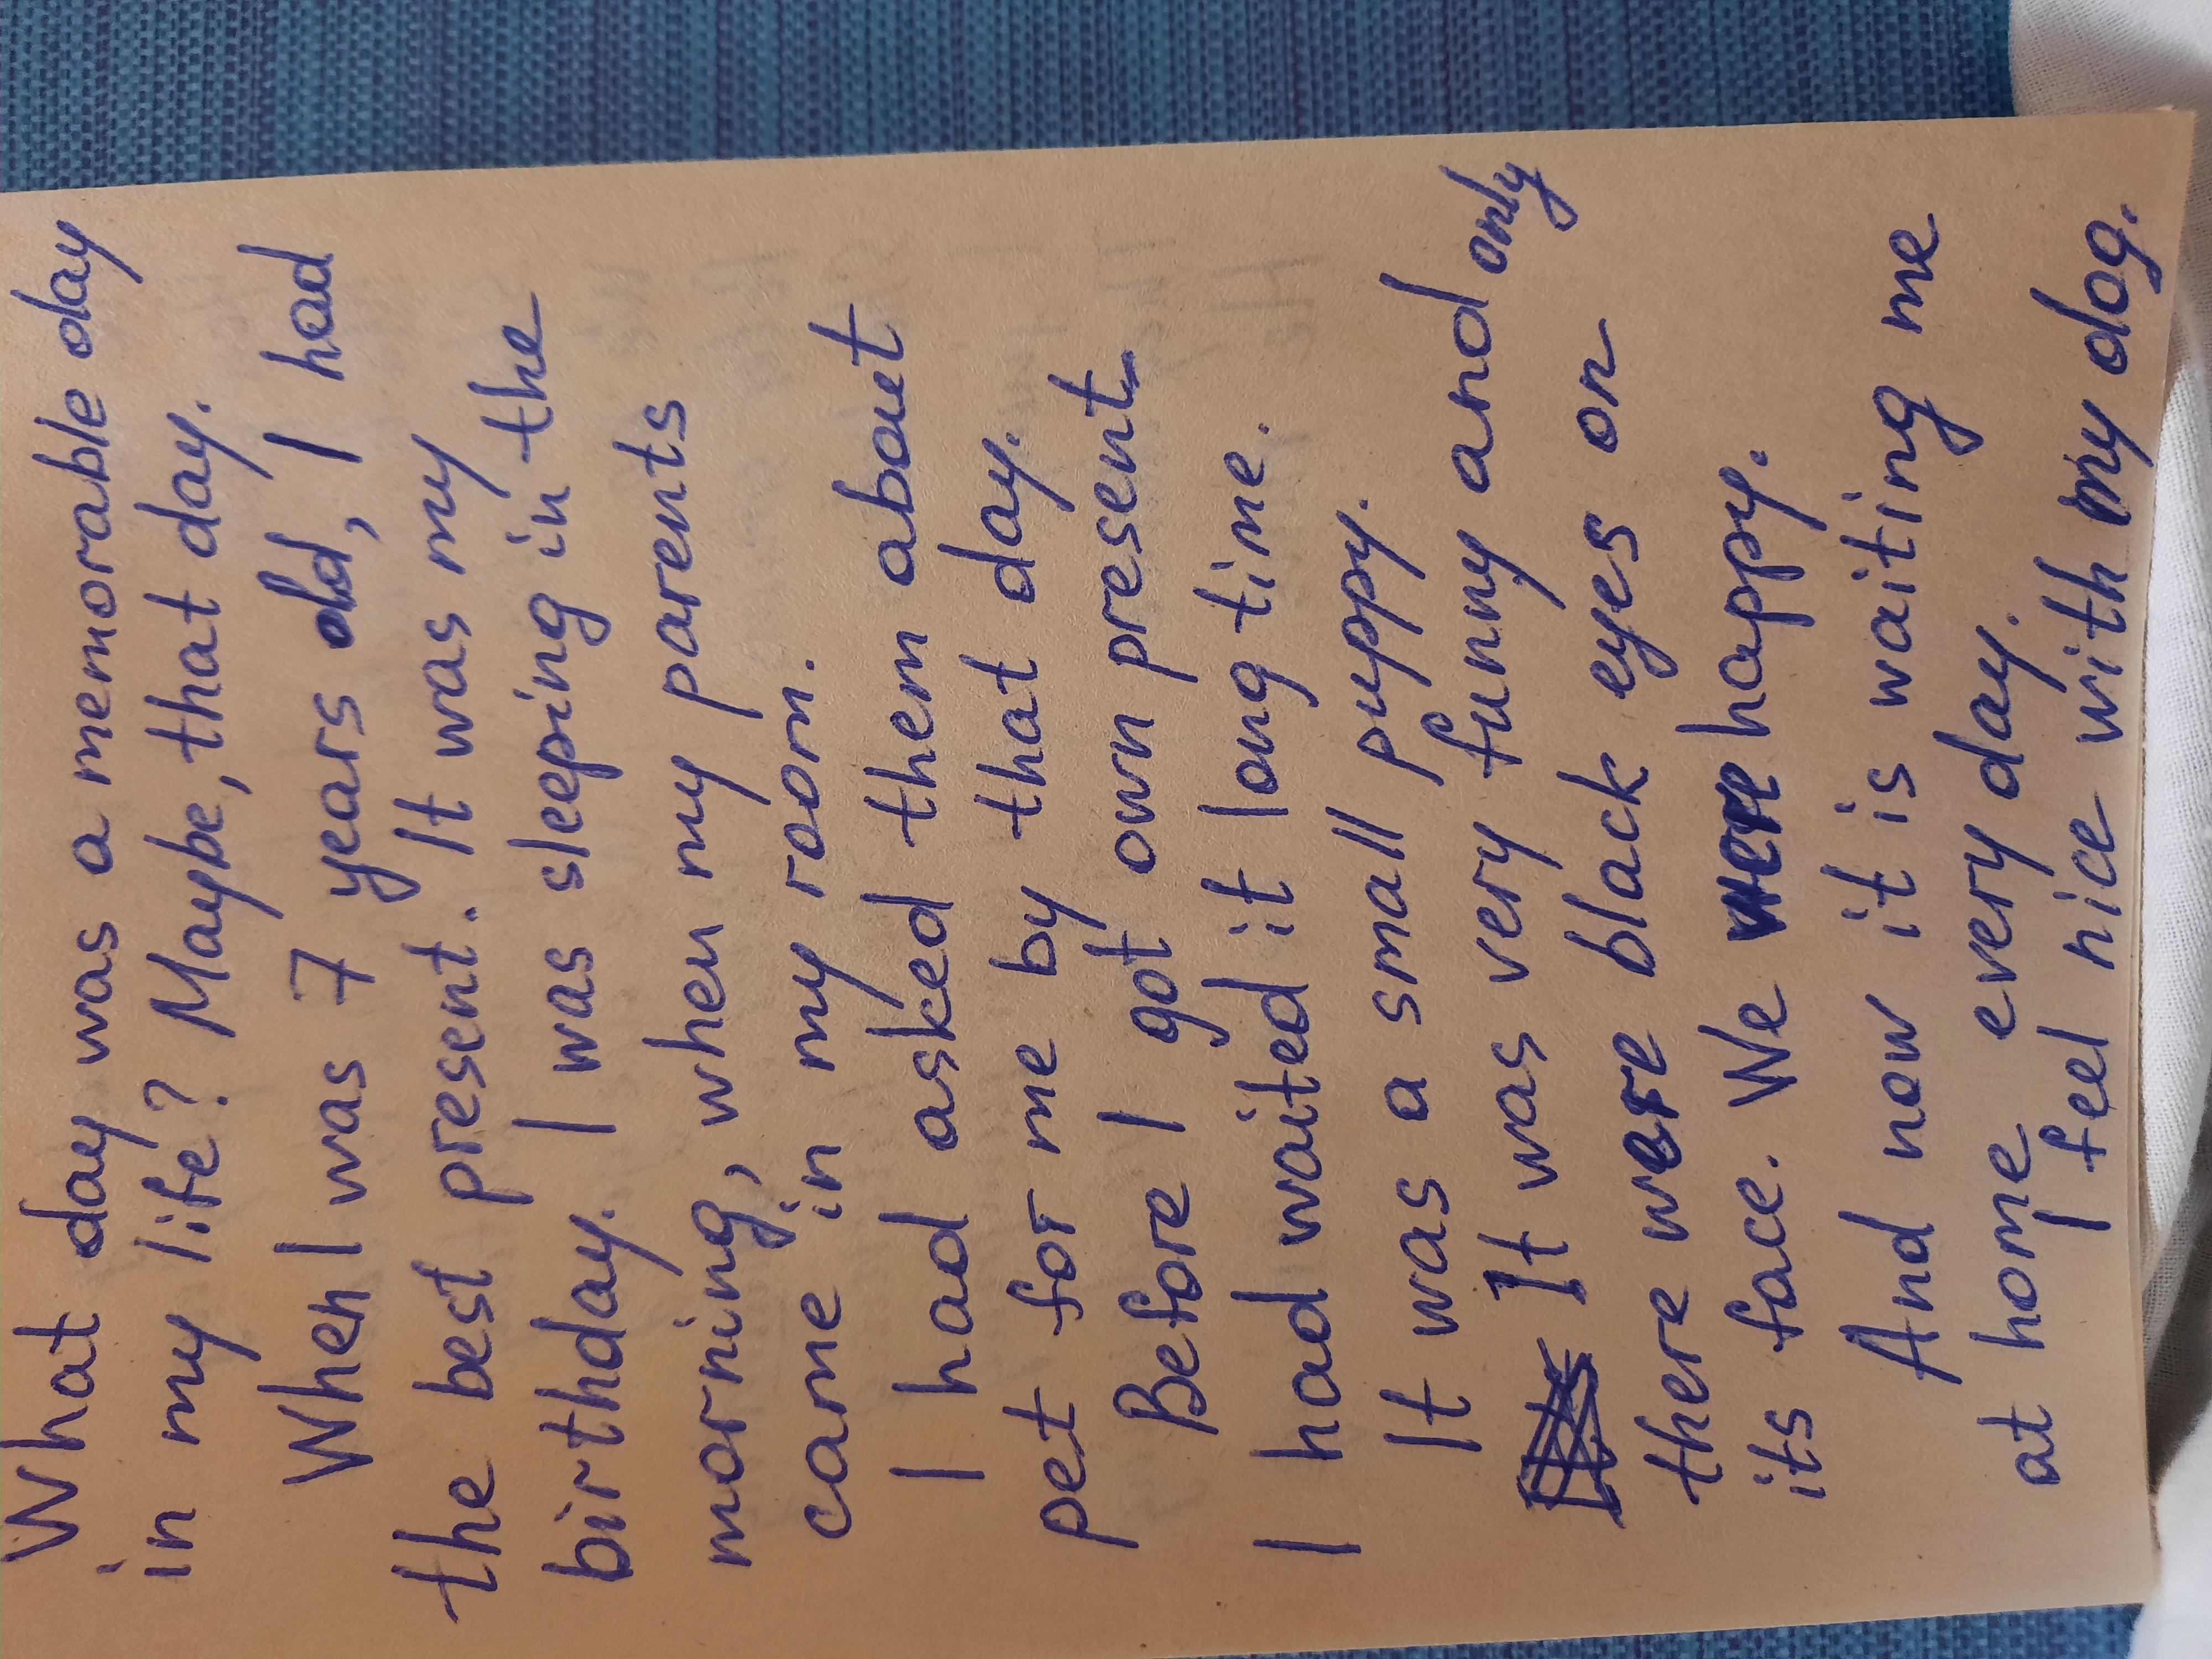 What day was a memorable day
in my life? Maybe, that day.
When I was 7 years old, I had
the best present. It was my
birthday. I was sleeping in the
morning, when my parents
came in my room.
I had asked them about
pet for me by that day.
Before I got own present
I had waited it long time.
It was a small puppy.
It was very funny and only
there were black eyes on
its face. We were happy.
And now it is waiting me
at home every day.
I feel nice with my dog.